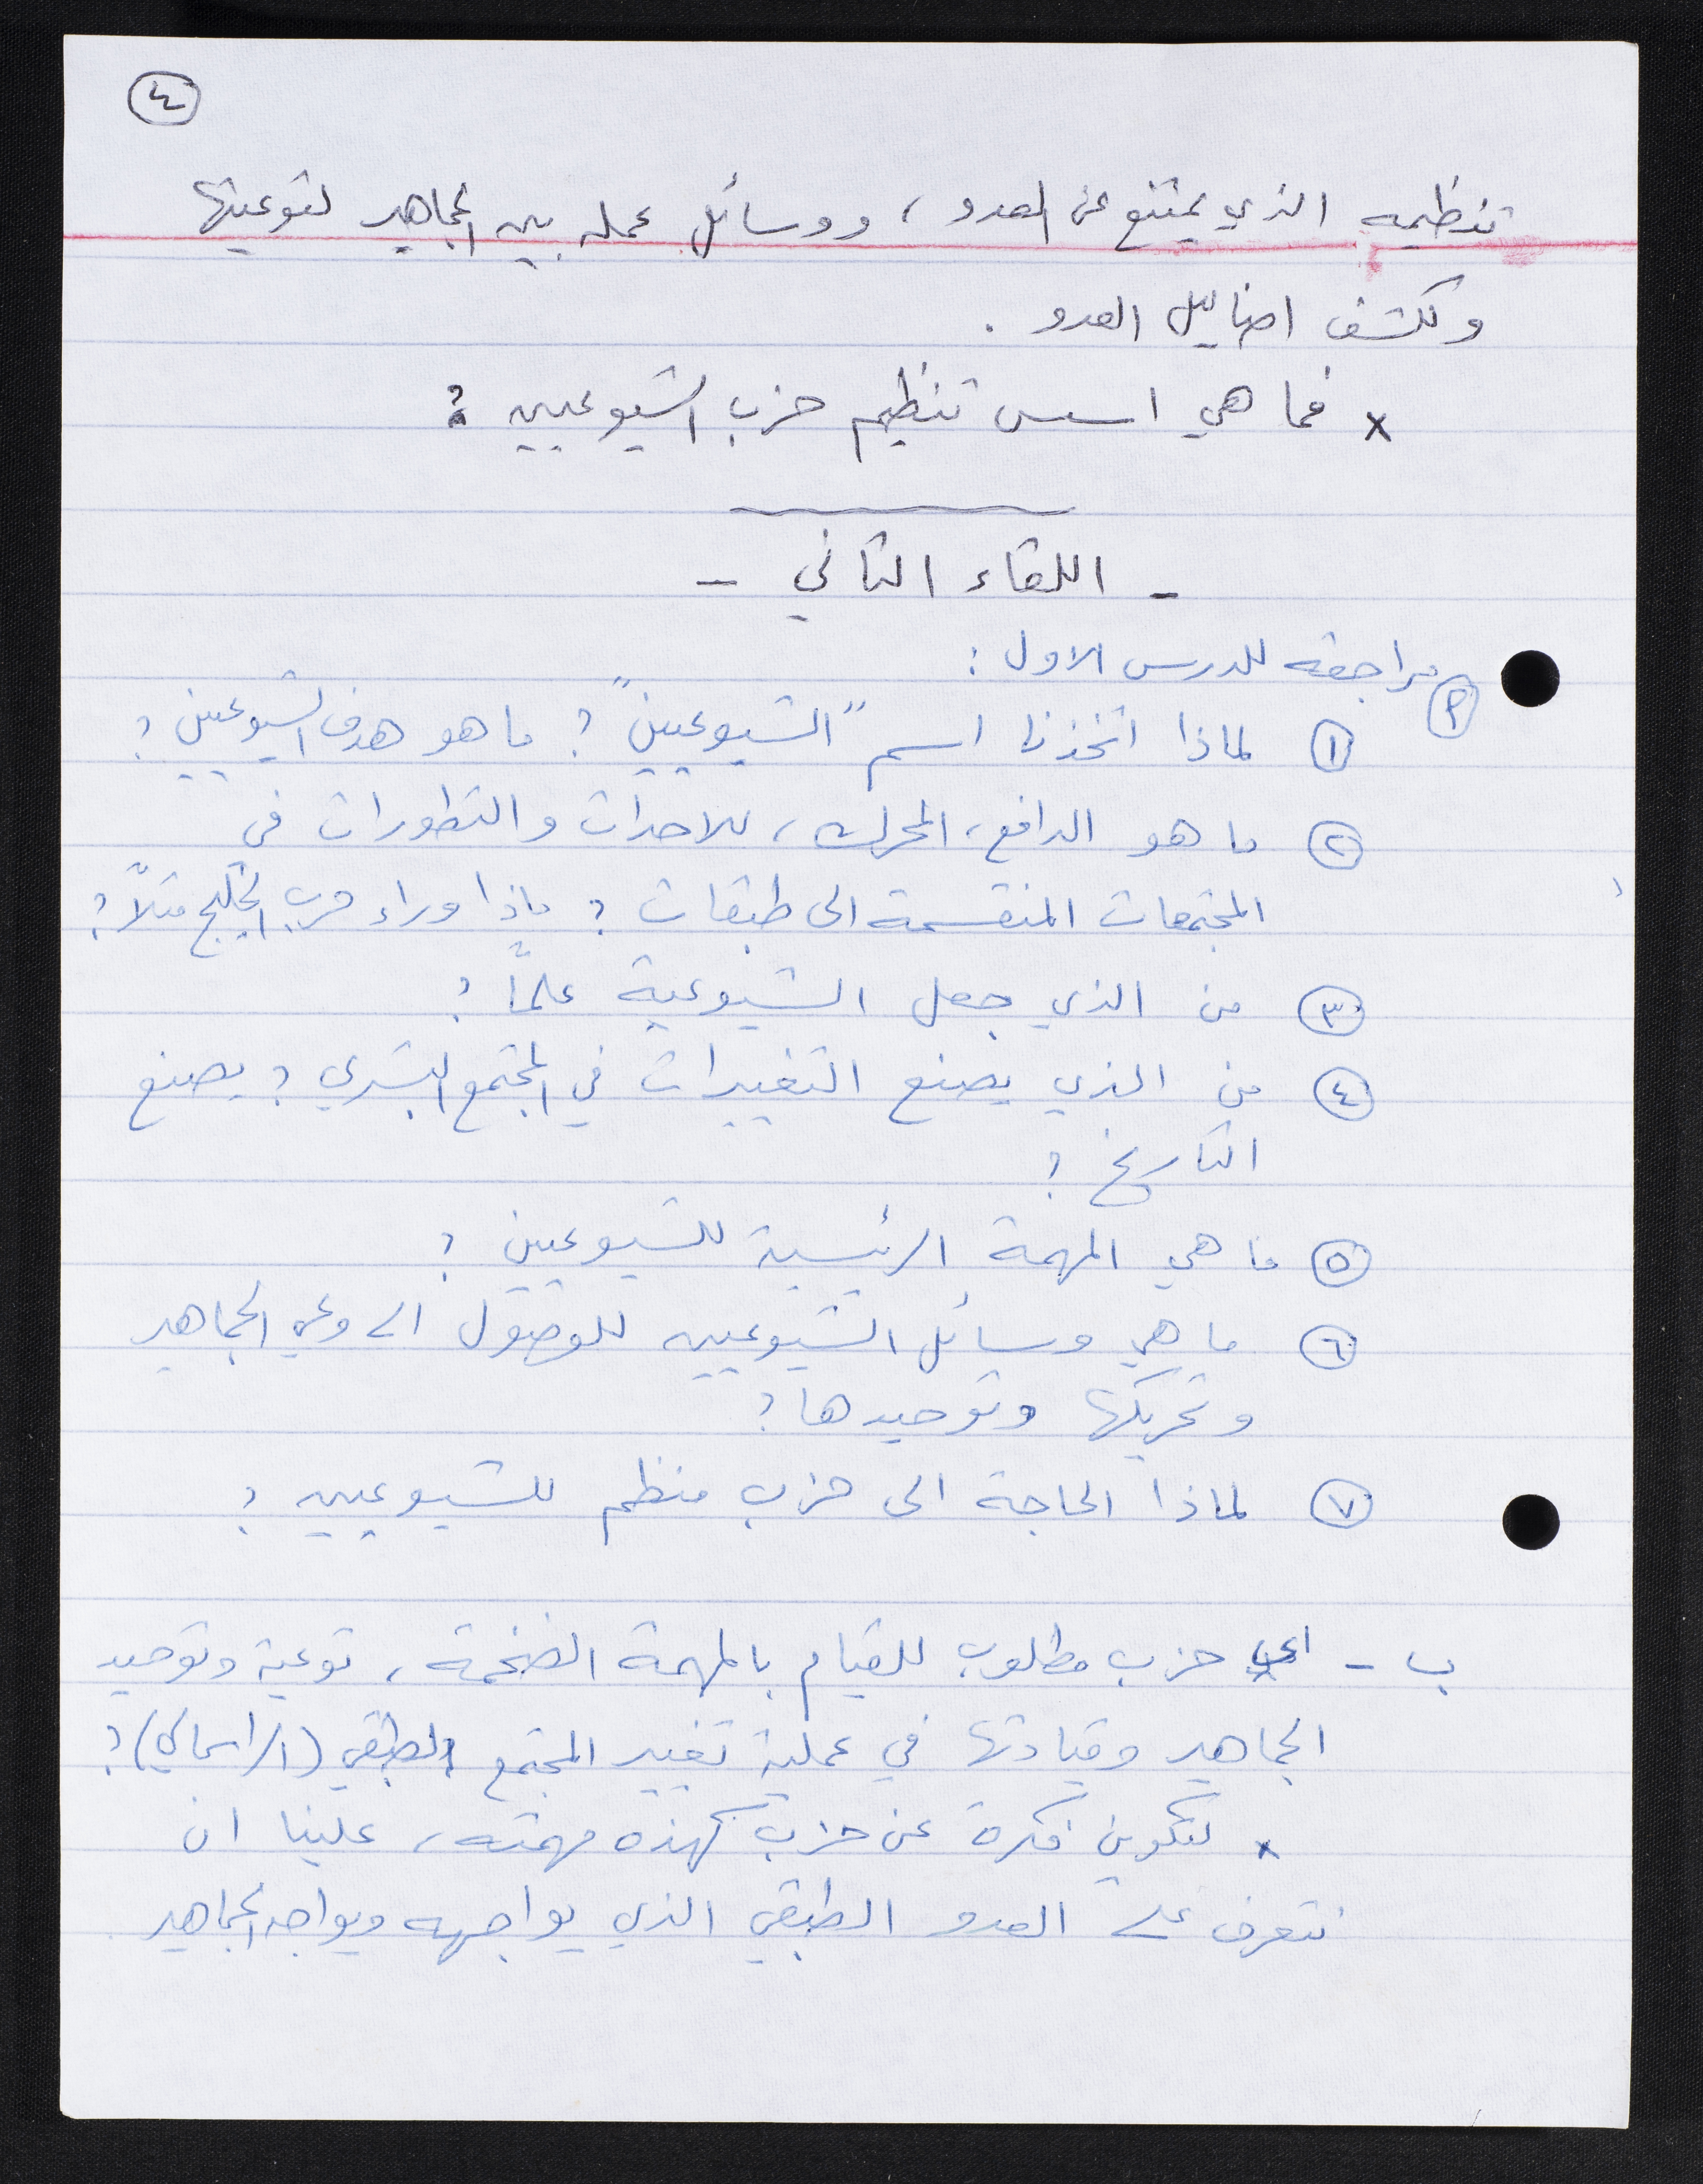 ٤
تنظيمه الذي يمتنع عن العدو، ووسائل عمله بين الجماهير لتوعيتها
وكشف اضاليل العدو.
x فما هي اسس تنظيم حزب الشيوعيين؟
- اللقاء الثاني -
أ مراجعه للدرس الاول:
١ لماذا اتخذنا اسم "الشيوعيين"؟ ما هو هدف الشيوعيين؟
٢ ما هو الدافع، المحرك، للاحداث والتطورات في
المجتمعات المنقسمة الى طبقات؟ ماذا وراء حرب الخليج مثلاً؟
٣ من الذي جعل الشيوعية علماً؟
٤ من الذي يصنع التغييرات في المجتمع البشري؟ يصنع
التاريخ؟
٥ ما هي المهمة الرئيسية للشيوعيين؟
٦ ما هي وسائل الشيوعيين للوصول الى وعي الجماهير
وتحريكها وتوحيدها؟
٧ لماذا الحاجة الى حزب منظم للشيوعيين؟
ب - اي حزب مطلوب للقيام بالمهمة الضخمة، توعية وتوحيد
الجماهير وقيادتها في عملية تغيير المجتمع الطبقي (الراسمالي)؟
x لتكوين فكرة عن حزب كهذه مهمته، علينا ان
نتعرف على العدو الطبقي الذي يواجهه ويواجه الجماهير